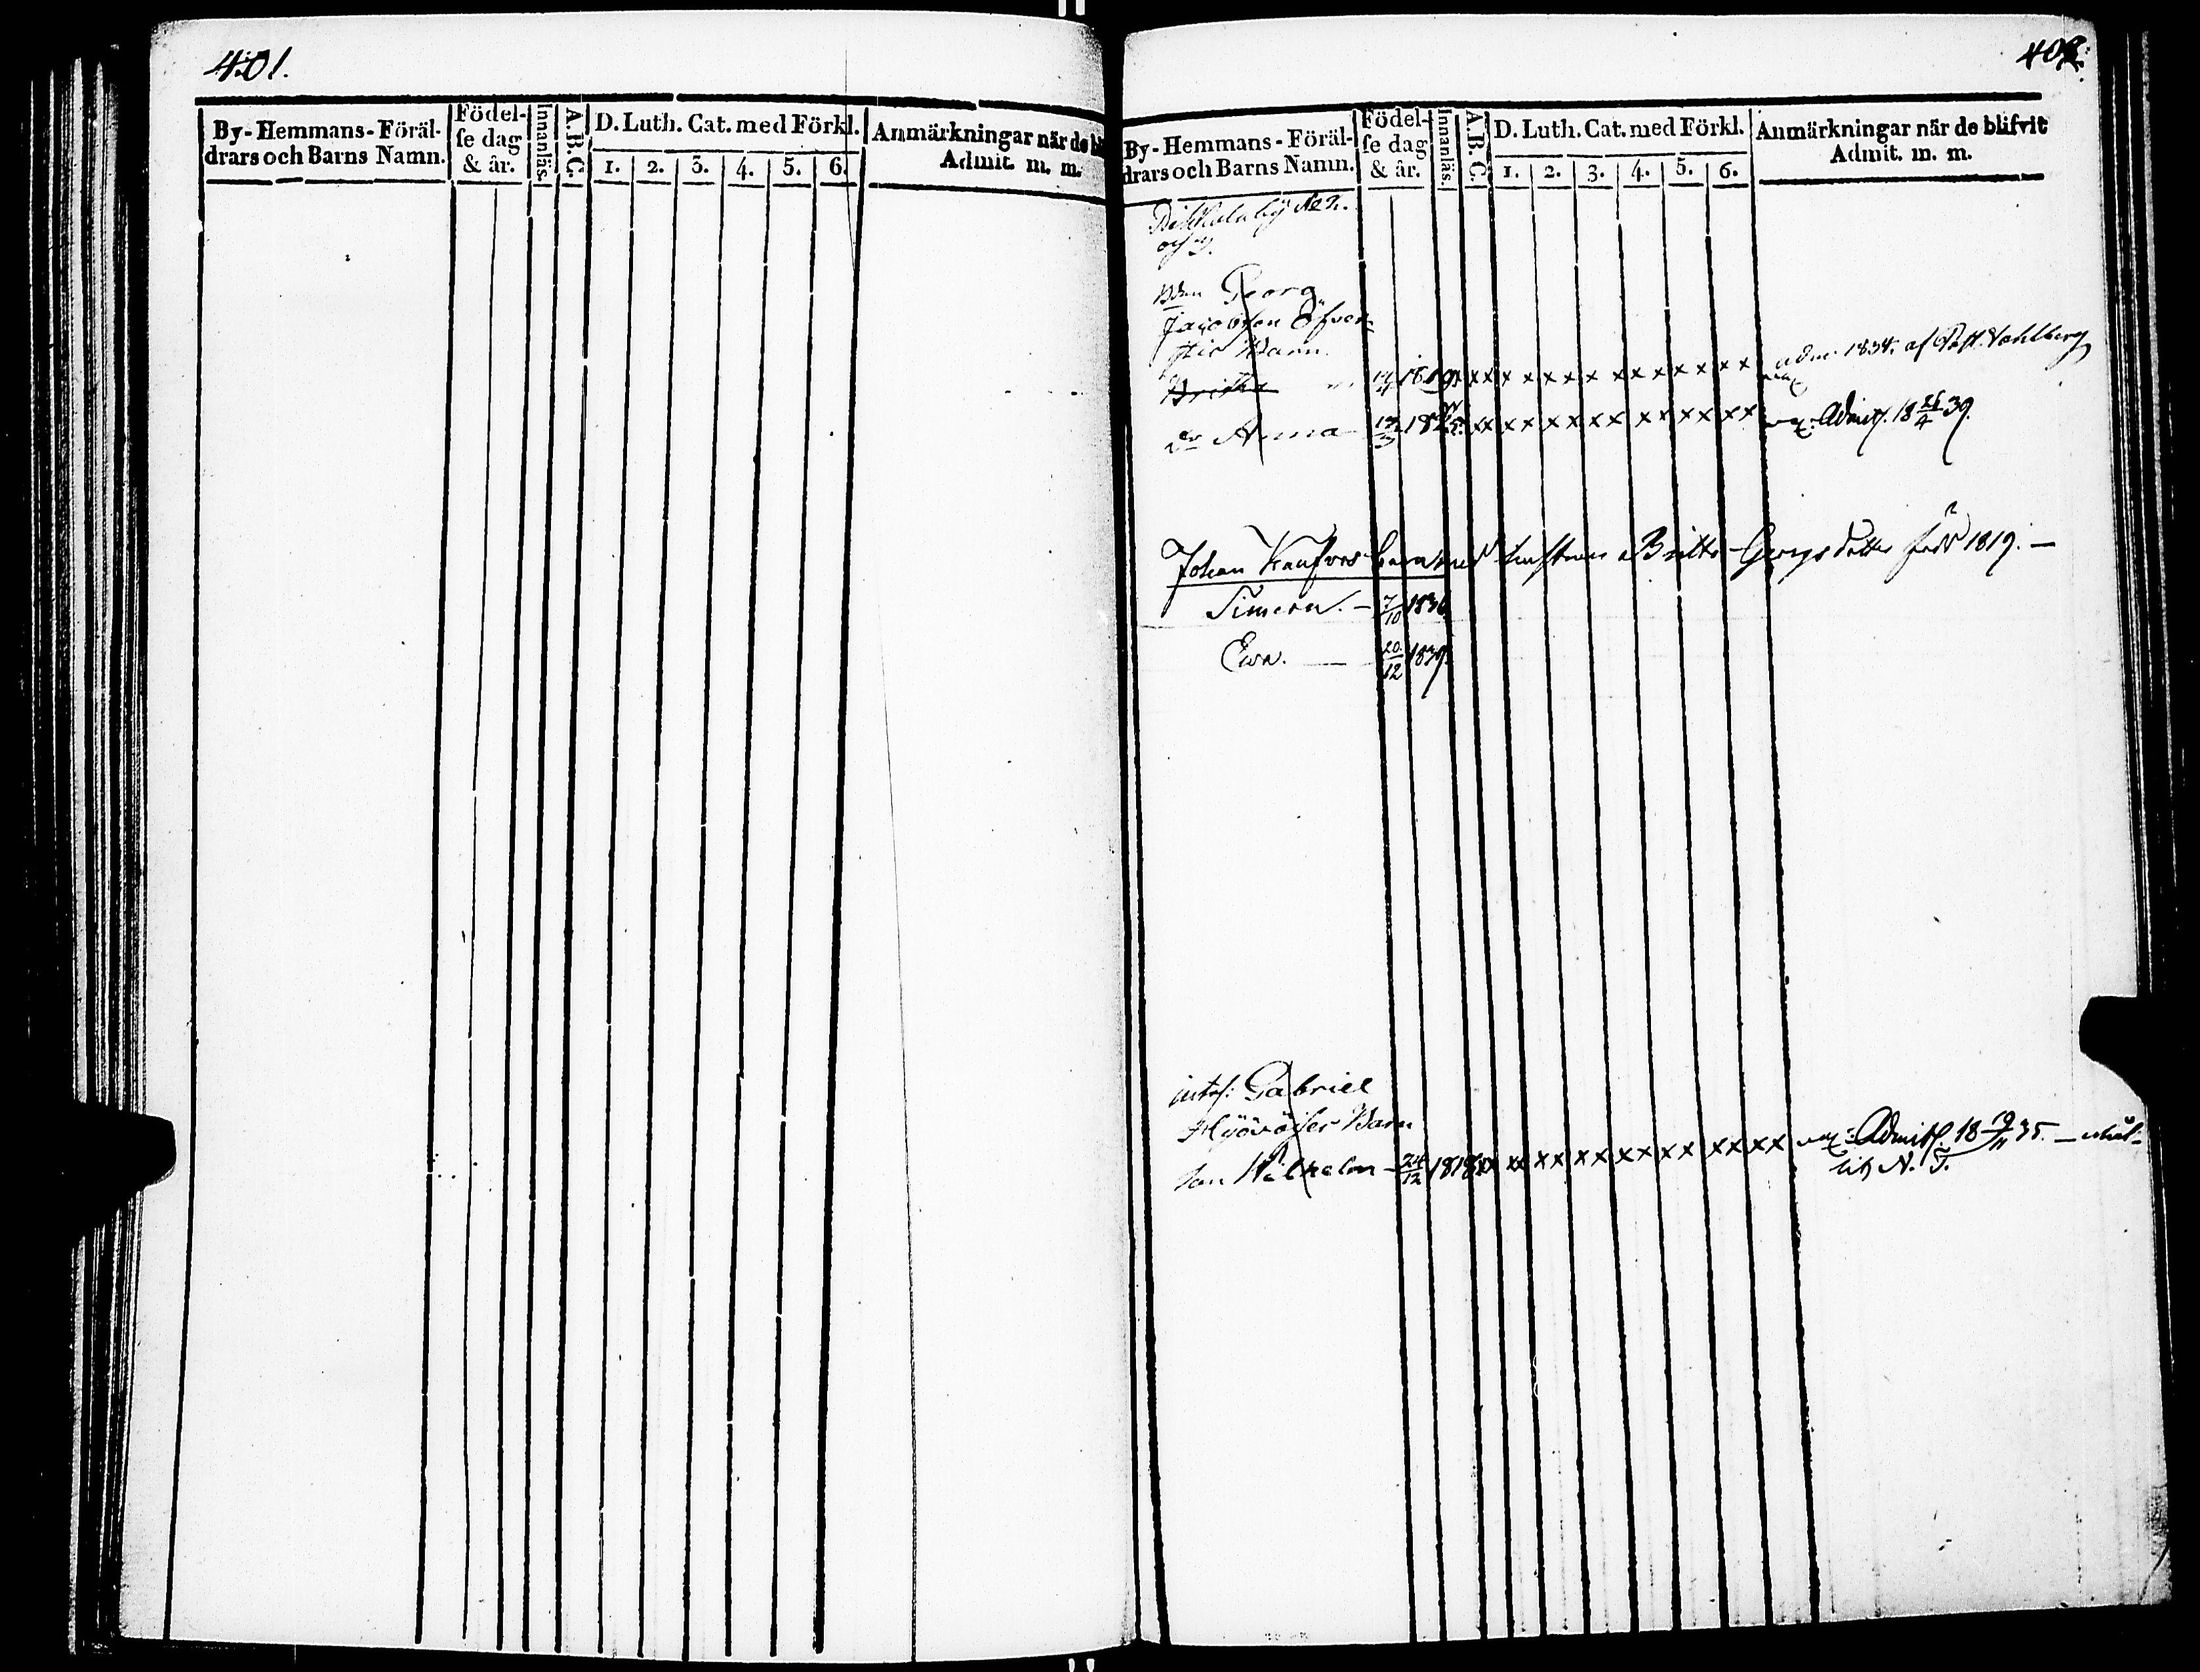 401.
By-Hemmans-Föräl-
drars och Barns Namn.
Födel-
se dag
& år.
Innanläs.
A.B.C.
D. Luth. Cat. med Förkl.
1. 2. 3. 4. 5. 6.
Anmärkningar när de
Admit. m. m.
402.
By-Hemmans-Föräl-
drars och Barns Namn.
Födel-
se dag
& år.
Innanläs.
A.B.C.
D. Luth. Cat. med Förkl.
1. 2. 3. 4. 5. 6.
Anmärkningar när de blifvit
Admit. m. m.
Georg
Jacobson Öfver-
Barn
Britha 1819 x x x x x x x x x x x x x x x adm: 1834. af Past. Vahlberg
Dr Anna 13/3 x x x x x x x x x x x x x x Admitt. 18 25/4 39.
Johan 1819. —
Simeon. — 7/10 1836
Eva. — 20/12 1839.
Gabriel
Barn
Son Wilhelm — 24/12 1818 x x x x x x x x x x x x x x Admitt. 18 19/11 35. —
N. T.